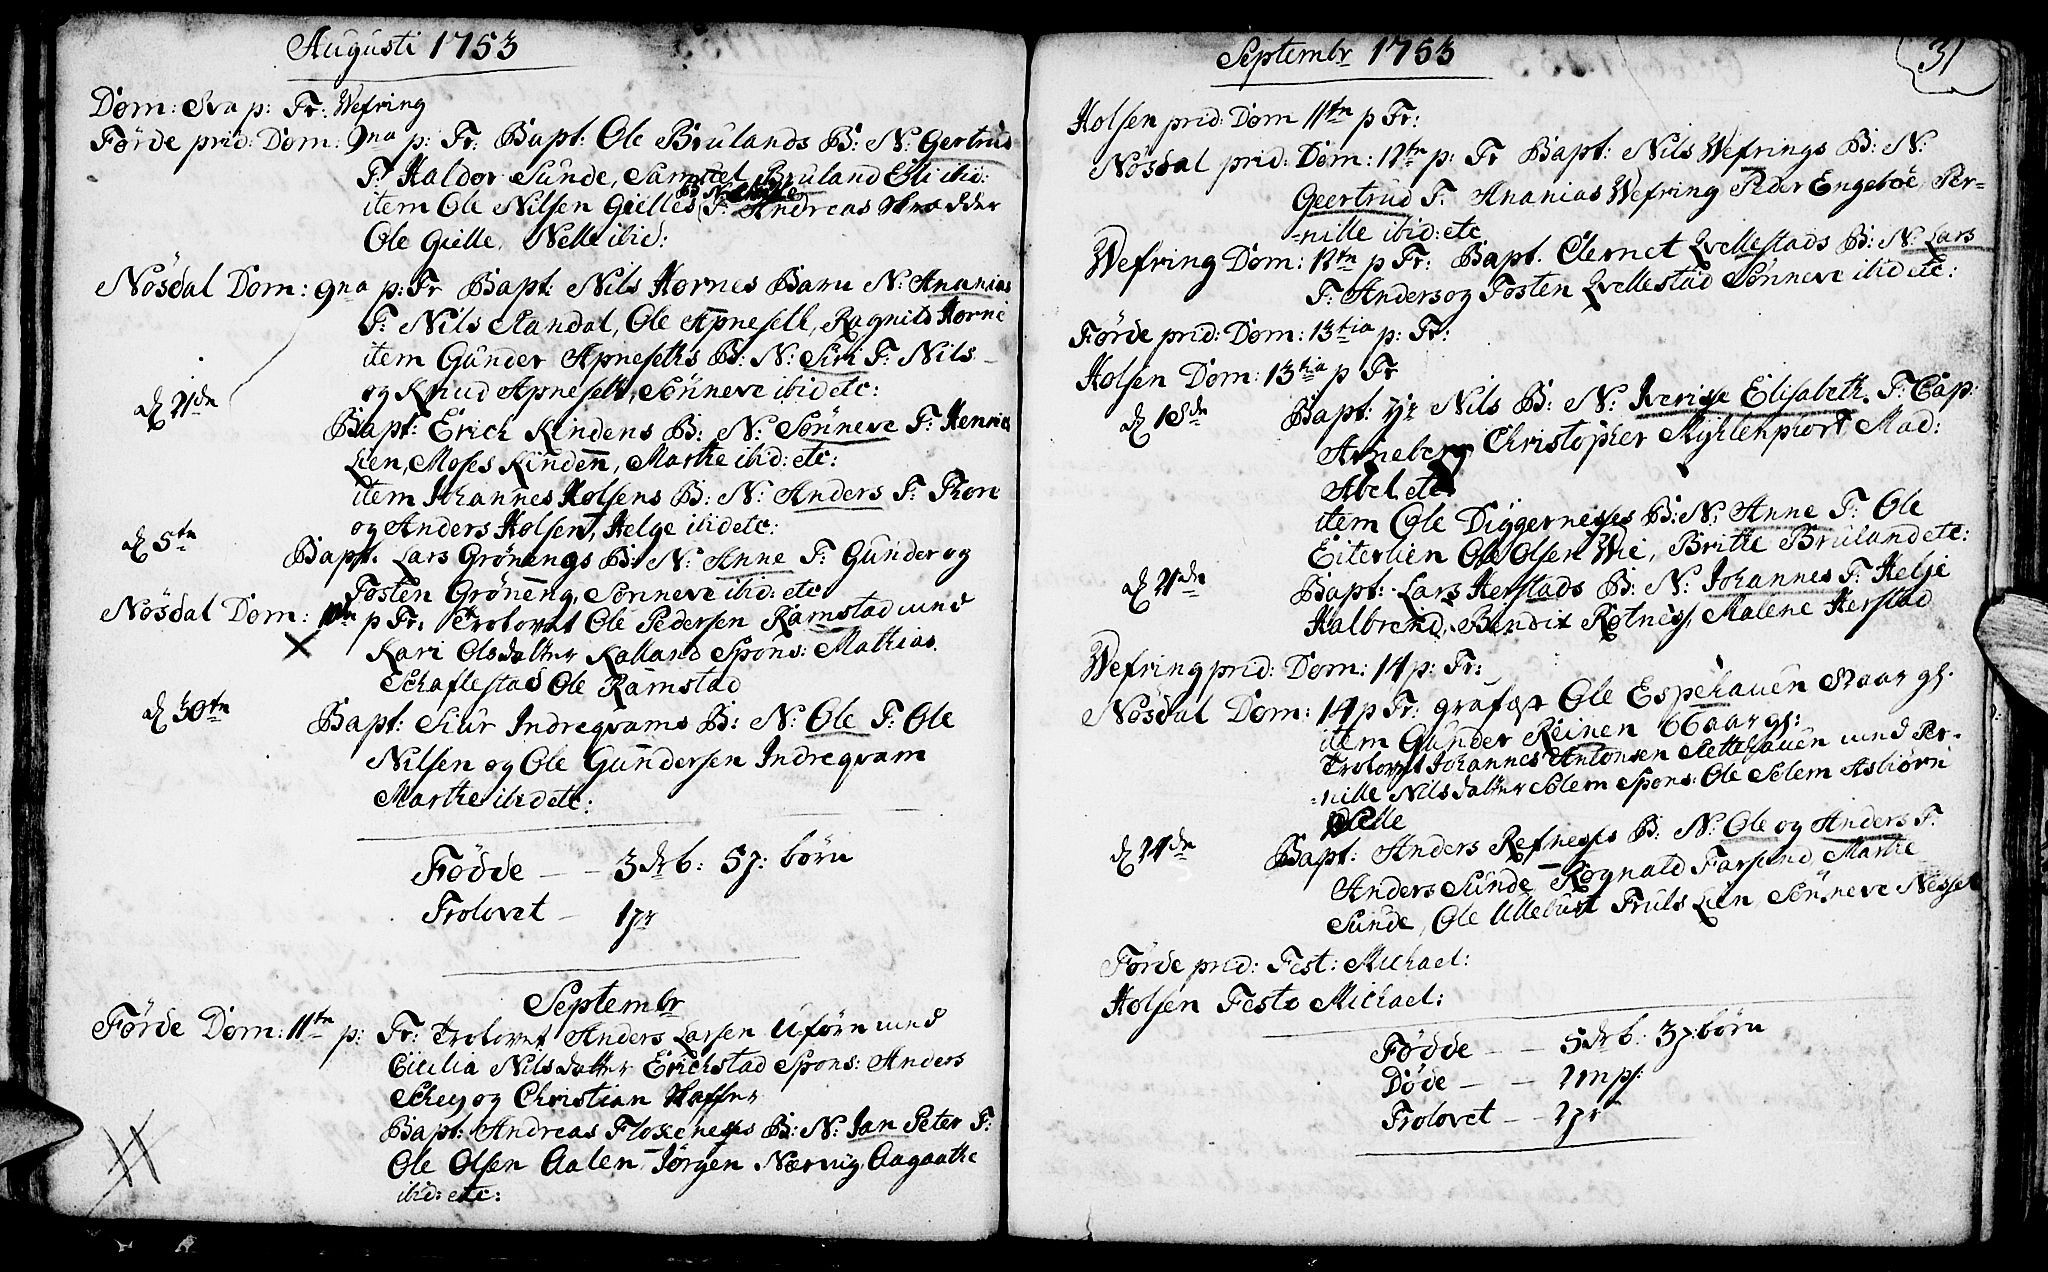 Augusti 1753
Dom: 8va p: Tr: Wefring
Förde prid: Dom: 9na p: Tr: Bapt: Ole Brulands B: N: Gertrud
T: Haldor Sunde, Samuel Bruland Eli ibid:
B: N:
item Ole Nilsen Gielles T: Andreas Skrædder
Ole Gielle, Nelle ibid:
Nösdal Dom: 9na p: Tr Bapt: Nils Hornes Barn N: Ananias
T: Nils Standal, Ole Apneseth, Ragnild Horne
item Gunder Apneseths B: N: Siri T: Nils
og Knud Apneseth, Sönneve ibid etc:
d 21de Bapt: Erich Kindens B: N: Sönneve T: Henrich
Lien, Moses Kinden, Marthe ibid: etc:
item Johannes Holsens B: N: Anders T: Thore
og Anders Holsen, Helge ibid etc:
d 5te Bapt. Lars Grönengs B: N: Anne T: Gunder og
Tosten Gröneng, Sönneve ibid: etc
Nösdal Dom: p Tr. Trolovet Ole Pedersen Ramstad med
Kari Olsdatter Kalland Spons: Mathias
Schaflestad Ole Ramstad
d 30te Bapt: Siur Indreqvams B: N: Ole T: Ole
Nilsen og Ole Gundersen Indreqvam
Marthe ibid etc:
Födde - - 3 drb: 5 p: börn
Trolovet - 1 pr
Septembr
Förde Dom: 11te p: Tr: Trolovet Anders Larsen Uförn med
Cicilia Nilsdatter Erichstad Spons: Anders
Schey og Christian Haffner
Bapt: Andreas Flokenæs B: N: Jan Peter T:
Ole Olsen Aalen, Jörgen Nærvig, Aagaathe
ibid: etc:
Septembr 1753
31
Holsen prid: Dom 11te p Tr:
Nösdal prid: Dom: 12te p: Tr Bapt: Nils Wefrings B: N:
Geertrud T: Ananias Wefring Peder Engeböe, Per=
=nille ibid: etc
Wefring Dom: 12te p Tr: Bapt. Elernet Qvellestads B: N: Lars
T: Anders og Tosten Qvellestad Sönneve ibid etc:
Förde prid: Dom: 13tia p: Tr:
Holsen Dom: 13tia p Tr
d 18de Bapt: Nils B: N: Elisabeth. T: Cap:
Arneberg Christopher Myhlenphort Mad:
Abel etc
item Ole Diggernesses B: N: Anne T: Ole
Eiterlien Ole Olsen Wie, Britte Bruland etc:
d 21de Bapt: Lars Herstads B: N: Johannes T: Helje
Halbrend, Bendix Rotness, Malene Herstad
Wefring prid: Dom: 14 p: Tr:
Nösdal Dom: 14 p Tr: grafæst Ole Espehauen aar gl:
item Gunder Reinen 66 aar gl:
Trolovet Johannes Antonsen Slettehauen med Per=
=nille Nilsdatter Solem Spons: Ole Solem Asbiörn

d 24de Bapt: Anders Refnesses B: N: Ole og Anders T:
Anders Sunde Rognald Farsund, Marthe
Sunde, Ole Ullebust Truls Lien Sönneve Nesset
Förde prid: Fest: Michael:
Holsen Festo Michael:
Födde - - 5 drb: 3 p: börn
Döde - - 2 mp:
Trolovet - - 2 pr